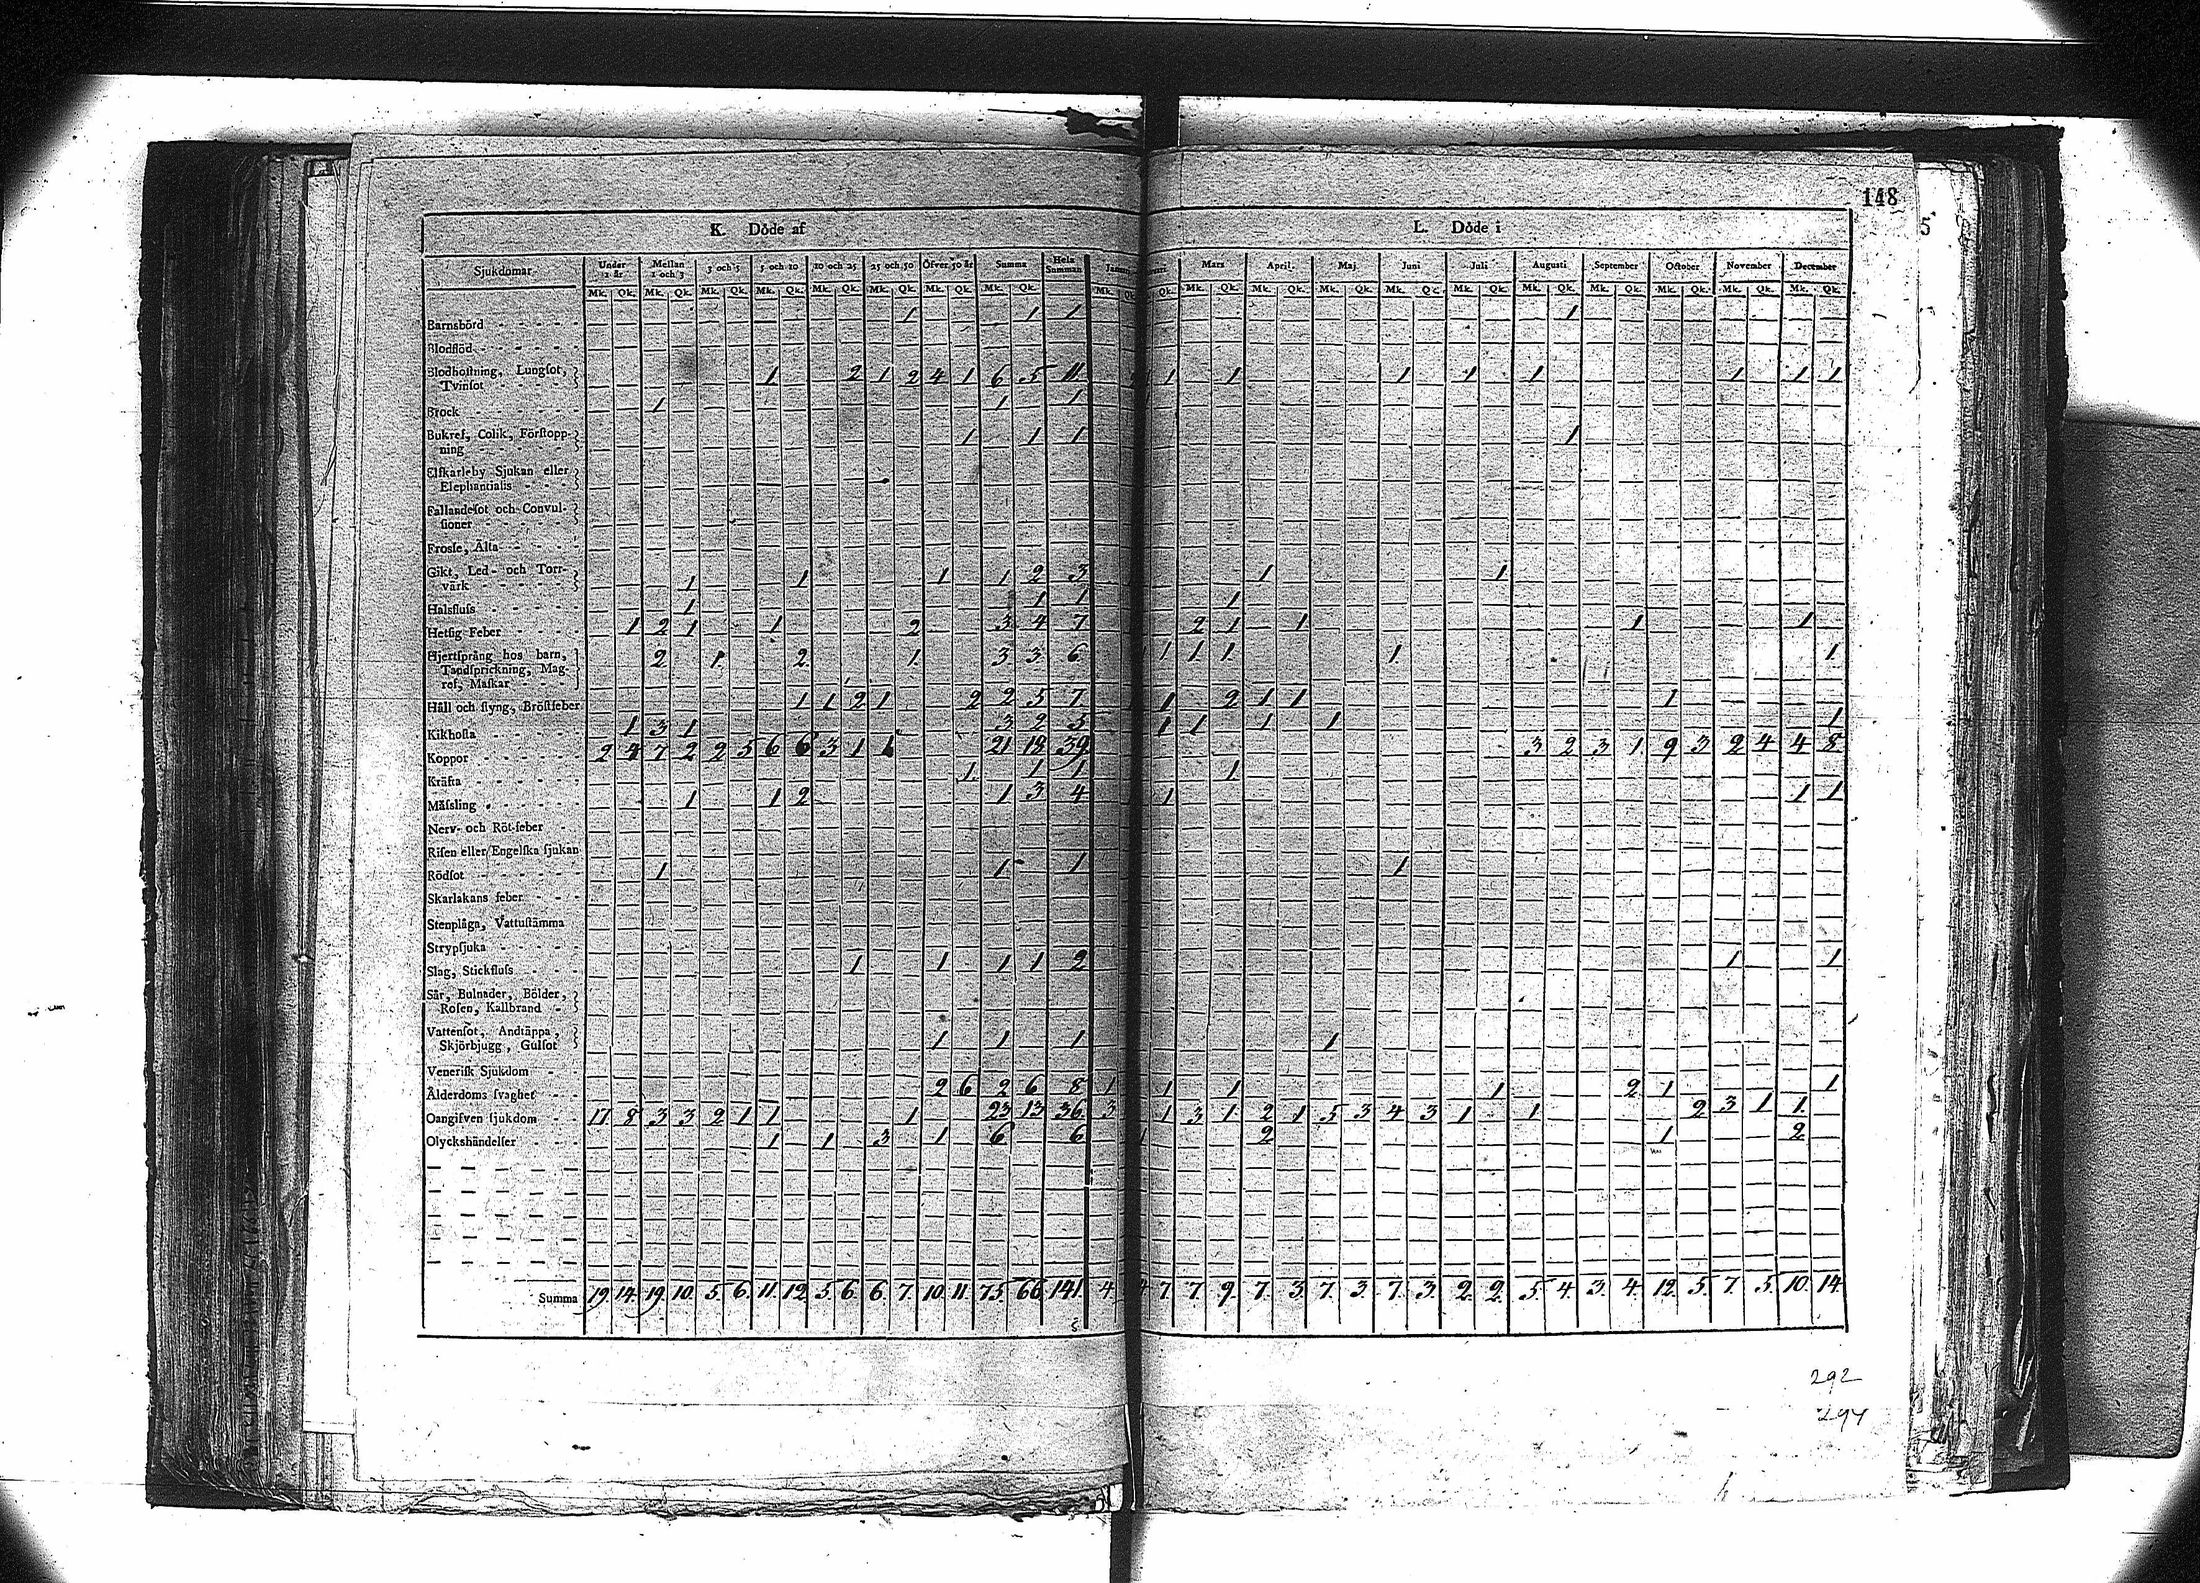 148
5
K. Döde af
L. Döde i
Sjukdomar Under 1 år Mellan 1 och 3 3 och 5 5 och 10 10 och 25 25 och 50 Öfver 50 år Summa Hela Summan Mars April. Maj. Juni Juli Augusti September October November December
Mk. Qk. Mk. Qk. Mk. Qk. Mk. Qk. Mk. Qk. Mk. Qk. Mk. Qk. Mk. Qk. Mk. Qk. Mk. Qk. Mk. Qk. Mk. Qk. Mk. Qk. Mk. Qk. Mk. Qk. Mk. Qk. Mk. Qk. Mk. Qk. Mk. Qk.
Barnsbörd 1 1 1 1
Blodflöd
Blodhoſtning, Lungſot,
Tvinſot 1 2 1 2 4 1 6 5 11 1 1 1 1 1 1 1 1
Brock 1 1 1
Bukref, Colik, Förſtopp-
ning 1 1 1 1
Elfkarleby Sjukan eller
Elephantiaſis
Fallandeſot och Convul-
ſioner
Frosſe, Älta
Gikt, Led- och Torr-
värk 1 1 1 1 2 3 1 1
Halsfluſs 1 1 1 1
Hetſig Feber 1 2 1 1 2 3 4 7 2 1 1 1 1
Hjertſprång hos barn,
Tandſprickning, Mag-
ref, Maſkar 2 1 2 1 3 3 6 1 1 1 1 1
Håll och ſtyng, Bröſtfeber 1 1 2 1 2 2 5 7 1 2 1 1 1
Kikhoſta 1 3 1 3 2 5 1 1 1 1 1
Koppor 2 4 7 2 2 5 6 6 3 1 1 21 18 39 3 2 3 1 9 3 2 4 4 8
Kräfta 1 1 1 1
Mäſsling 1 1 2 1 3 4 1 1 1
Nerv- och Röt-feber
Riſen eller Engelſka ſjukan
Rödſot 1 1 1 1
Skarlakans feber
Stenplåga, Vattuſtämma
Strypſjuka
Slag, Stickfluſs 1 1 1 1 2 1 1
Sår, Bulnader, Bölder,
Roſen, Kallbrand
Vattenſot, Andtäppa,
Skjörbjugg, Gulſot 1 1 1 1
Veneriſk Sjukdom
Ålderdoms ſvaghet 2 6 2 6 8 1 1 1 1 2 1 1
Oangifven ſjukdom 17 8 3 3 2 1 1 1 23 13 36 3 1 3 1 2 1 5 3 4 3 1 1 2 3 1 1
Olyckshändelſer 1 1 3 1 6 6 1 2 1 2
Summa 19. 14. 19. 10. 5. 6. 11. 12. 5. 6. 6. 7. 10. 11. 75. 66. 141. 4. 7. 7. 9. 7. 3. 7. 3. 7. 3. 2. 2. 5. 4. 3. 4. 12. 5. 7. 5. 10. 14.
292
294